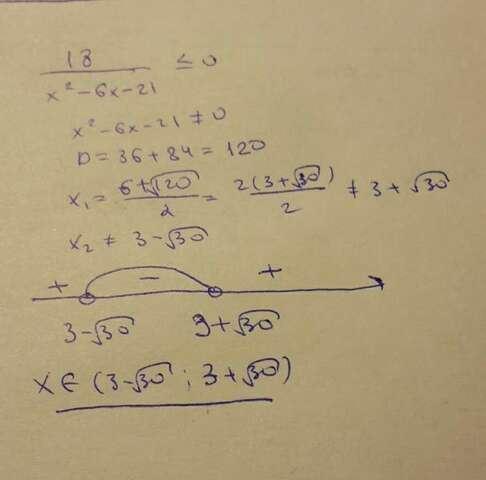 18 / (x² - 6x - 21) ≤ 0
x² - 6x - 21 ≠ 0
D = 36 + 84 = 120
x₁ = (6 + √120) / 2 = 2(3 + √30) / 2 ≠ 3 + √30
x₂ ≠ 3 - √30
+ - +
3 - √30 3 + √30
x ∈ (3 - √30 ; 3 + √30)